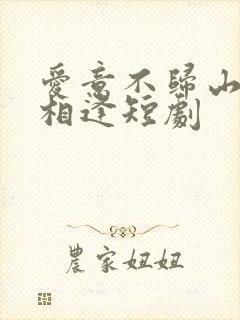 愛意不歸山
相逢短劇
農家妞妞